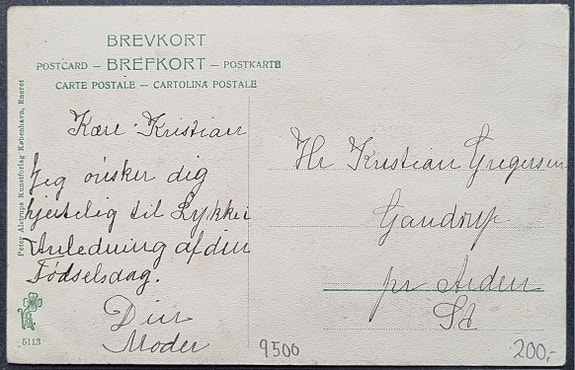 BREVKORT
POSTCARD — BREFKORT — POSTKARTE
CARTE POSTALE — CARTOLINA POSTALE
Peter Alstrups Kunstforlag København, Eneret
Kære Kristian
Jeg ønsker dig
hjertelig til Lykke i
Anledning af din
Fødselsdag.
Din
Moder
Hr Kristian Gregersen
Gandrup
pr Arden
St
5113
9500
200,-